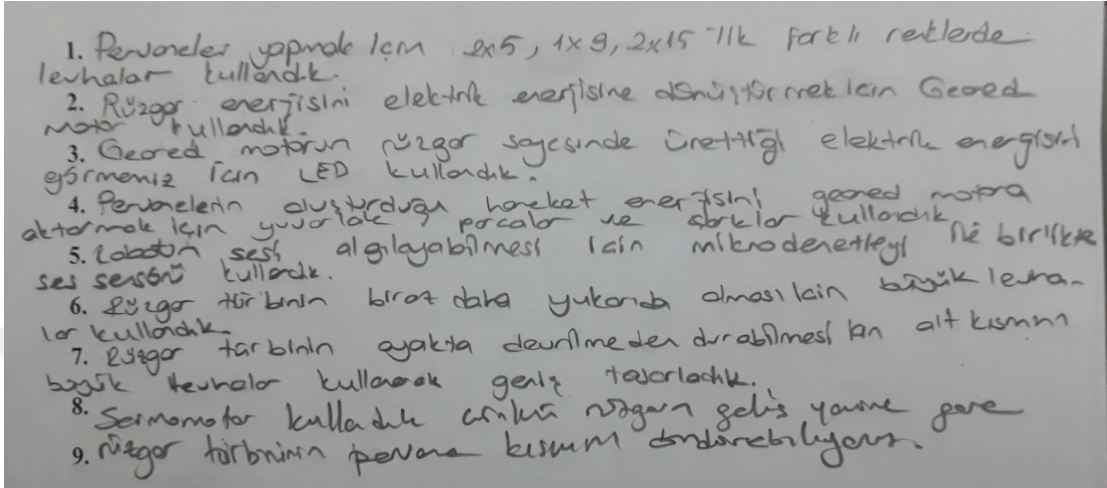 1. Pervaneler yapmak için 2x5, 1x9, 2x15 'lik farklı renklerde
levhalar kullandık.
2. Rüzgar enerjisini elektrik enerjisine dönüştürmek için Geared
Motor kullandık.
3. Geared motorun rüzgar sayesinde ürettiği elektrik energisini
görmemiz için LED kullandık.
4. Pervanelerin oluşturduğu hareket enerjisini geared motora
aktarmak için yuvarlak parcalar ve çarklar kullandık
5. Robotun sesi algılayabilmesi için mikrodenetleyi ile birlikte
ses sensörü kulladık.
6. Rüzgar türbinin biraz daha yukarıda olması için büyük levha-
lar kullandık.
7. Rüzgar türbinin ayakta devrilmeden durabilmesi için alt kısmını
büyük levhalar kullanarak geniş tasarladık.
8. Servomotor kulladık çünkü rüzgarın geliş yönüne göre
9. rüzgar türbininin pervane kısmını döndürebiliyoruz.